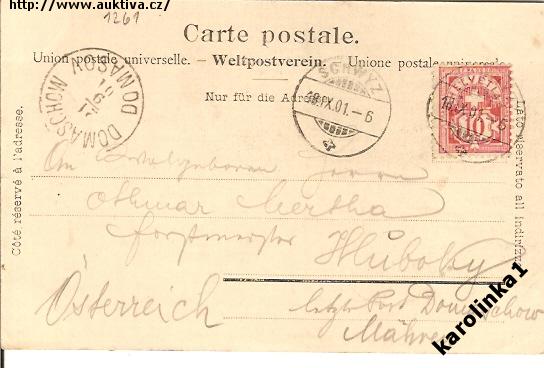 http://www.auktiva.cz/
1261
Carte postale.
Union postale universelle. – Weltpostverein. – Unione postale universale
Nur für die Adresse.
Côté réservé à l'adresse.
Lato riservato all'indirizzo.
DOMAŠOV DOMASCHOW
SCHWYZ
18.IX.01.–6
HELVETIA
10
An Hochwohlgeboren Herrn
Othmar Mertha
Forstmeister
Hluboky
letzte Post Domaschow
Österreich
Mähren
karolinka1